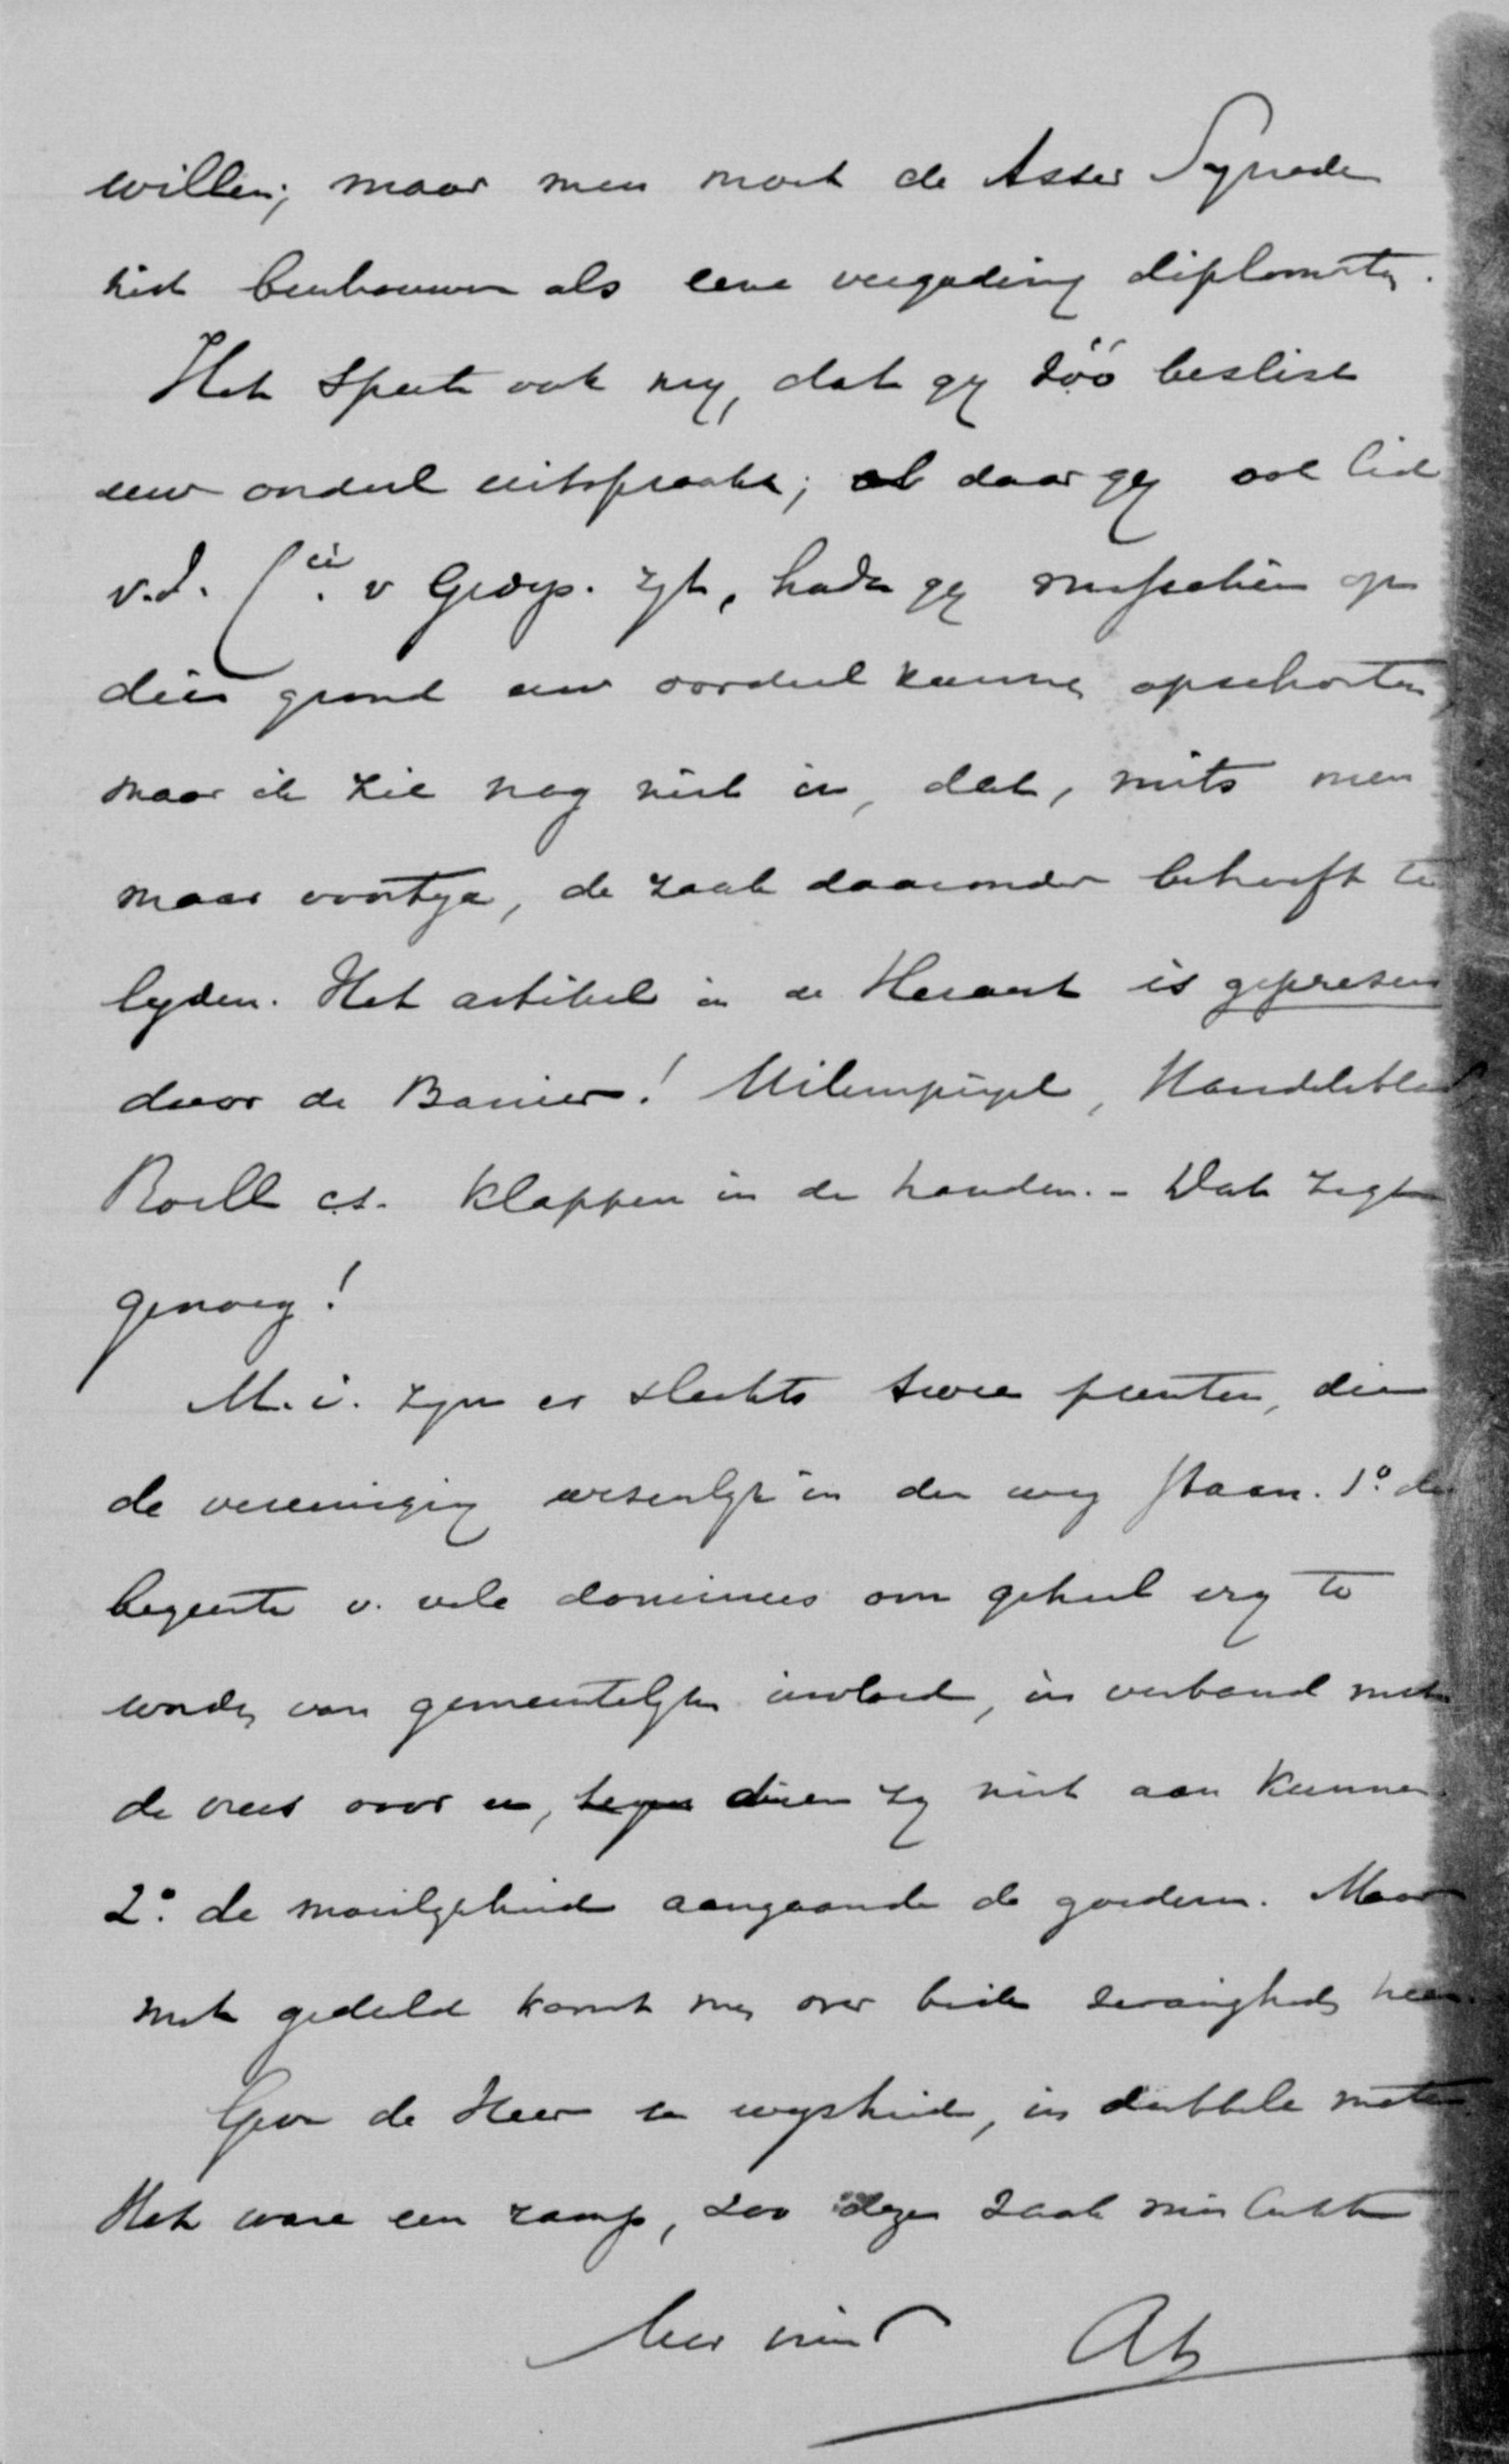 willen; maar men moet de Asser Synode
niet beschouwen als eene vergadering diplomaten.
Het speet ook my, dat gy zóó beslist
uw oordeel uitspraakt; daar gy ook lid
v.d. Cie v Gedep. zyt, hadt gy misschien op
dien grond uw oordeel kunnen opschorten,
maar ik zie nog niet in, dat, mits men
maar voortga, de zaak daaronder behoeft te
lyden. Het artikel in de Heraut is geprezen
door de Banier! Uilenspiegel, Handelsblad
Roëll c.s. klappen in de handen. - Dat zegt
genoeg!
M.i. zyn er slechts twee punten, die
de vereeniging wezenlyk in den weg staan. 1º. de
begeerte v. vele dominees om geheel vry te
worden van gemeentelyken invloed, in verband met
de vrees voor u, dien zy niet aan kunnen.
2º. de moeilykheid aangaande de goederen. Maar
met geduld komt men over beide zwarigheden heen.
Geve de Heer u wysheid, in dubbele mate
Het ware een ramp, zoo deze zaak mislukte